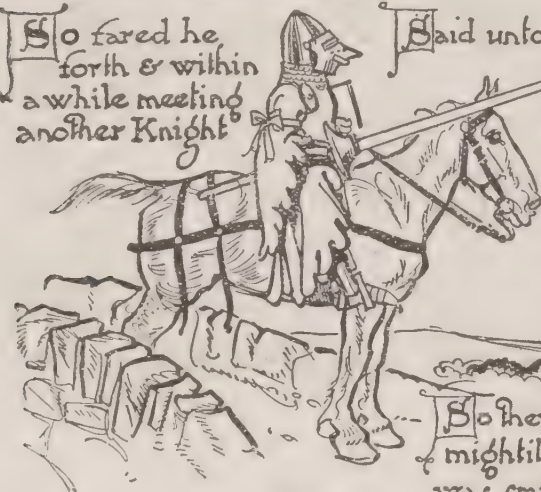 So fared he
forth & within
awhile meeting
another Knight
Said unto
So the
mightil